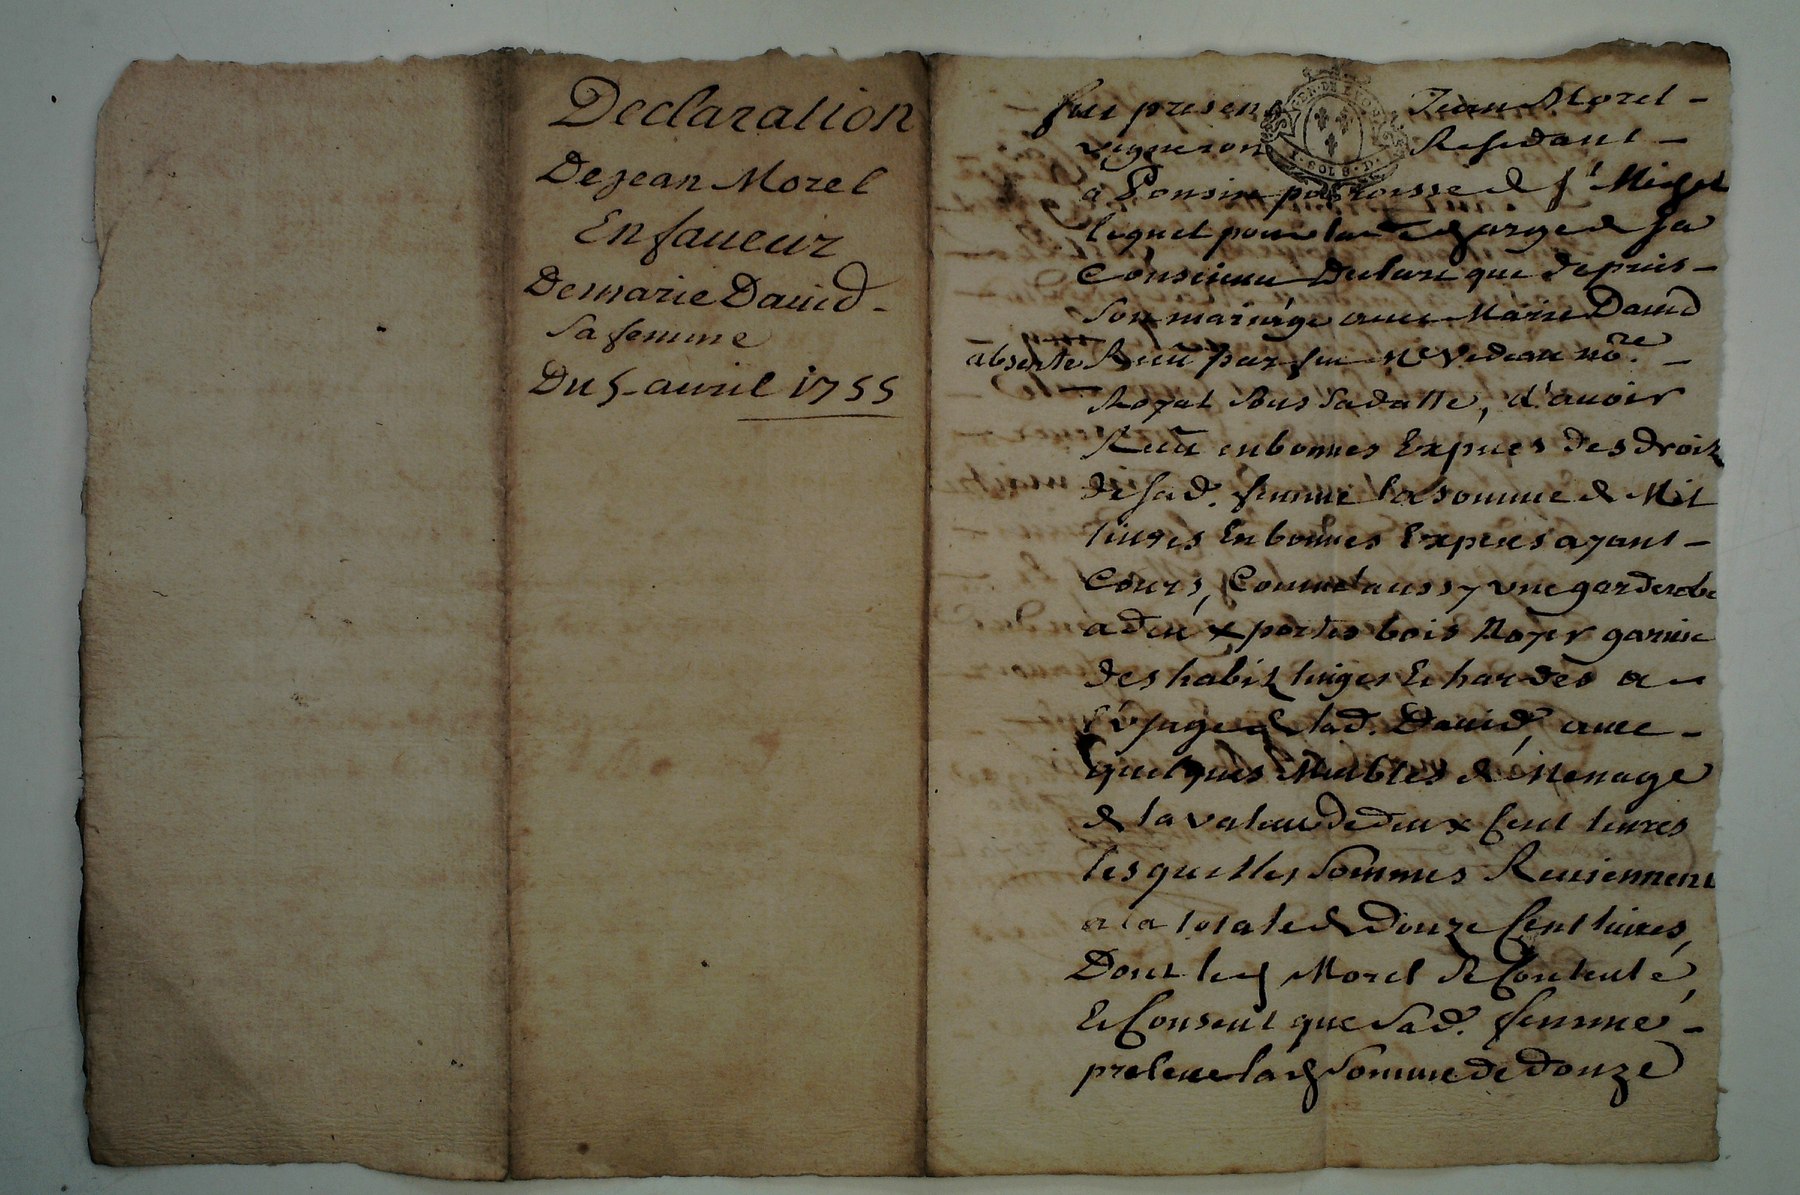 Declaration
De jean Morel
En faueur
De marie Dauid -
Sa femme
Du 5 auril 1755
fut present Jean Morel -
vigneron Residant -
a Ponsin parroisse de St Michel
lequel pour la décharge de sa
Consience Declare que depuis -
son mariage auec Marie Dauid
absente Receu par feu Me nore. -
Royal sous sa datte, d'auoir
Receu en bonnes Expeces des droiz
de sad. femme la somme de Mil
liures En bonnes Expeces ayant -
Cours, Comme aussy vne garderobe
a deux portes bois Noyer garnie
des habiz linges Et hardes a -
l'vsage de lad. Dauid, auec -
quelques Meubles de Menage
de la valeur de deux Cent liures
lesquelles sommes Reuiennent
a la totale de Douze Cent liures,
Dont led Morel se Contente,
Et Consent que sad. femme -
preleue lad somme de douze